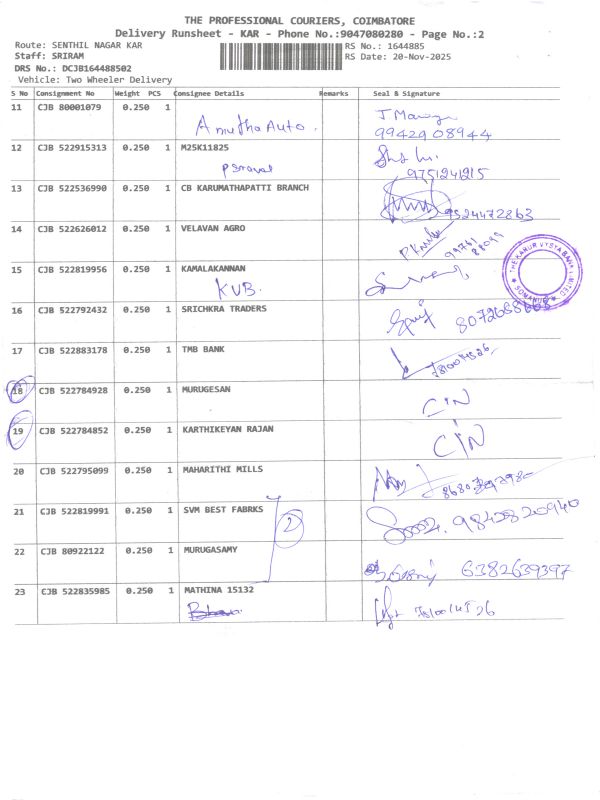 THE PROFESSIONAL COURIERS, COIMBATORE
Delivery Runsheet - KAR - Phone No.:9047080280 - Page No.:2
Route: SENTHIL NAGAR KAR RS No.: 1644885
Staff: SRIRAM RS Date: 20-Nov-2025
DRS No.: DCJB164488502
Vehicle: Two Wheeler Delivery
S No Consignment No Weight PCS Consignee Details Remarks Seal & Signature
11 CJB 80001079 0.250 1
Anutha Auto.
9942908944
12 CJB 522915313 0.250 1 M25K11825
9751241215
13 CJB 522536990 0.250 1 CB KARUMATHAPATTI BRANCH
9524472863
14 CJB 522626012 0.250 1 VELAVAN AGRO
THE KARUR VYSYA BANK LIMITED
SOMANUR
15 CJB 522819956 0.250 1 KAMALAKANNAN
KVB.
16 CJB 522792432 0.250 1 SRICHKRA TRADERS
17 CJB 522883178 0.250 1 TMB BANK
18 CJB 522784928 0.250 1 MURUGESAN
CIN
19 CJB 522784852 0.250 1 KARTHIKEYAN RAJAN
CIN
20 CJB 522795099 0.250 1 MAHARITHI MILLS
21 CJB 522819991 0.250 1 SVM BEST FABRKS
2
9842820940
22 CJB 80922122 0.250 1 MURUGASAMY
6382639397
23 CJB 522835985 0.250 1 MATHINA 15132